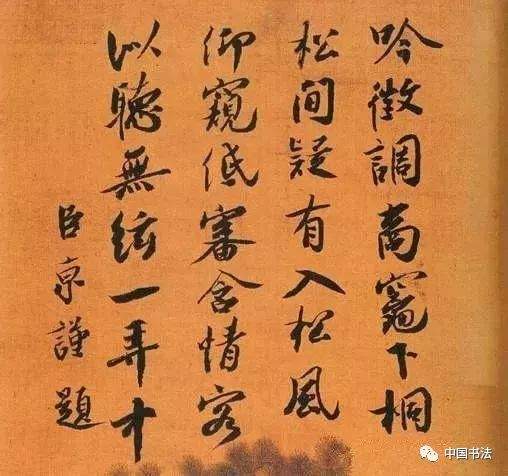 吟徵調商竈下桐
松間疑有入松風
仰窺低審含情客
似聽無絃一弄中
臣京謹題
中国书法